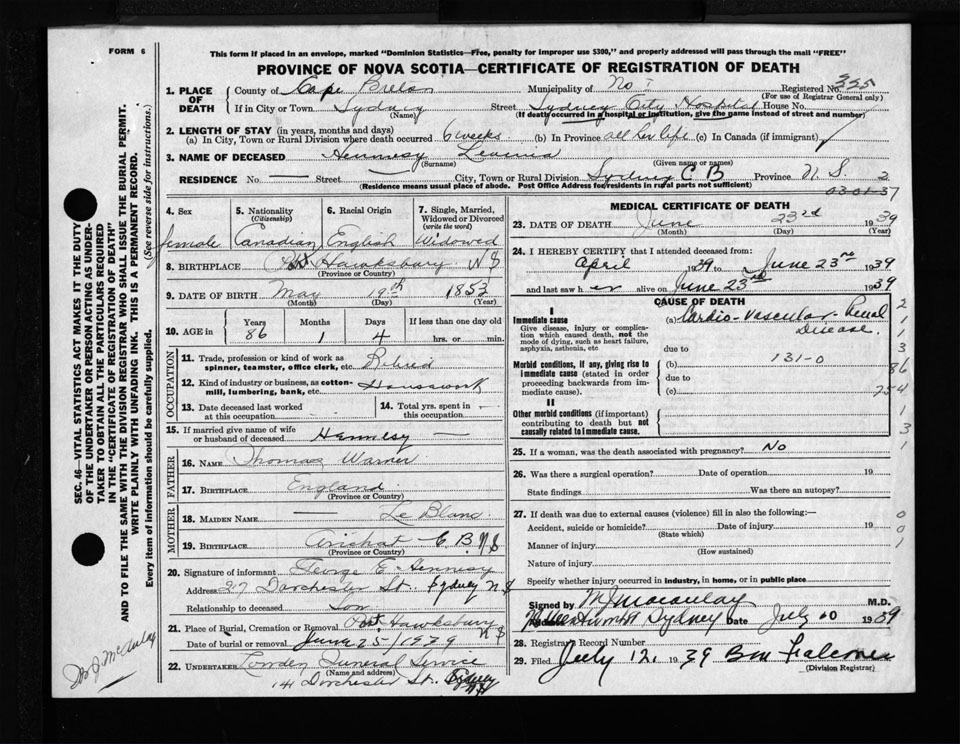 FORM 6
This form if placed in an envelope, marked "Dominion Statistics—Free, penalty for improper use $300," and properly addressed will pass through the mail "FREE"
PROVINCE OF NOVA SCOTIA—CERTIFICATE OF REGISTRATION OF DEATH
1. PLACE OF DEATH County of Cape Breton Municipality of No 1 Registered No. 355
(For use of Registrar General only)
If in City or Town Sydney Street Sydney City Hospital House No.
(Name) (If death occurred in a hospital or institution, give the name instead of street and number)
2. LENGTH OF STAY (in years, months and days)
(a) In City, Town or Rural Division where death occurred 6 weeks (b) In Province all her life (c) In Canada (if immigrant)
3. NAME OF DECEASED Hennesy
(Surname) (Given name or names)
RESIDENCE No. — Street — City, Town or Rural Division Sydney C B Province N. S. 2
(Residence means usual place of abode. Post Office Address for residents in rural parts not sufficient)
03-01-37
4. Sex
female
5. Nationality
(Citizenship)
Canadian
6. Racial Origin
English
7. Single, Married, Widowed or Divorced
(write the word)
Widowed
8. BIRTHPLACE Hawksbury N S
(Province or Country)
9. DATE OF BIRTH May 19th 1853
(Month) (Day) (Year)
10. AGE in Years Months Days If less than one day old
86 1 4 hrs. or min.
OCCUPATION
11. Trade, profession or kind of work as spinner, teamster, office clerk, etc. Retired
12. Kind of industry or business, as cotton-mill, lumbering, bank, etc. Housework
13. Date deceased last worked at this occupation
14. Total yrs. spent in this occupation -
15. If married give name of wife or husband of deceased Hennesy —
FATHER
16. NAME Thomas Warner
17. BIRTHPLACE England
(Province or Country)
MOTHER
18. MAIDEN NAME — Le Blanc
19. BIRTHPLACE Arichat C. B. N S
(Province or Country)
20. Signature of informant George E Hennesy
Address 217 Dorchester St. Sydney N S
Relationship to deceased Son
21. Place of Burial, Cremation or Removal Port Hawksbury N S
Date of burial or removal June 25/1939
22. UNDERTAKER Funeral Service
(Name and address)
141 Dorchester St. Sydney N S
MEDICAL CERTIFICATE OF DEATH
23. DATE OF DEATH June 23rd 1939
(Month) (Day) (Year)
24. I HEREBY CERTIFY that I attended deceased from:
April 1939 to June 23rd 1939
and last saw her alive on June 23rd 1939
CAUSE OF DEATH
I
Immediate cause (a) Cardio-Vascular-Renal Disease.
Give disease, injury or complication which caused death, not the mode of dying, such as heart failure, asphyxia, asthenia, etc
due to
Morbid conditions, if any, giving rise to immediate cause (stated in order proceeding backwards from immediate cause).
(b) 131-0
due to
(c)
II
Other morbid conditions (if important) contributing to death but not causally related to immediate cause.
2
1
1
3
86
754
1
3
1
25. If a woman, was the death associated with pregnancy? No
26. Was there a surgical operation? Date of operation 19
State findings Was there an autopsy?
27. If death was due to external causes (violence) fill in also the following:—
Accident, suicide or homicide? Date of injury 19
(State which)
Manner of injury
(How sustained)
Nature of injury
Specify whether injury occurred in industry, in home, or in public place
0
0
1
Signed by M J Macaulay M.D.
Sydney Date July 10 1939
28. Registration Record Number
29. Filed July 12, 1939
(Division Registrar)
SEC. 46—VITAL STATISTICS ACT MAKES IT THE DUTY OF THE UNDERTAKER OR PERSON ACTING AS UNDERTAKER TO OBTAIN ALL THE PARTICULARS REQUIRED IN THE "CERTIFICATE OF REGISTRATION OF DEATH" AND TO FILE THE SAME WITH THE DIVISION REGISTRAR WHO SHALL ISSUE THE BURIAL PERMIT.
WRITE PLAINLY WITH UNFADING INK. THIS IS A PERMANENT RECORD.
Every item of information should be carefully supplied. (See reverse side for instructions.)